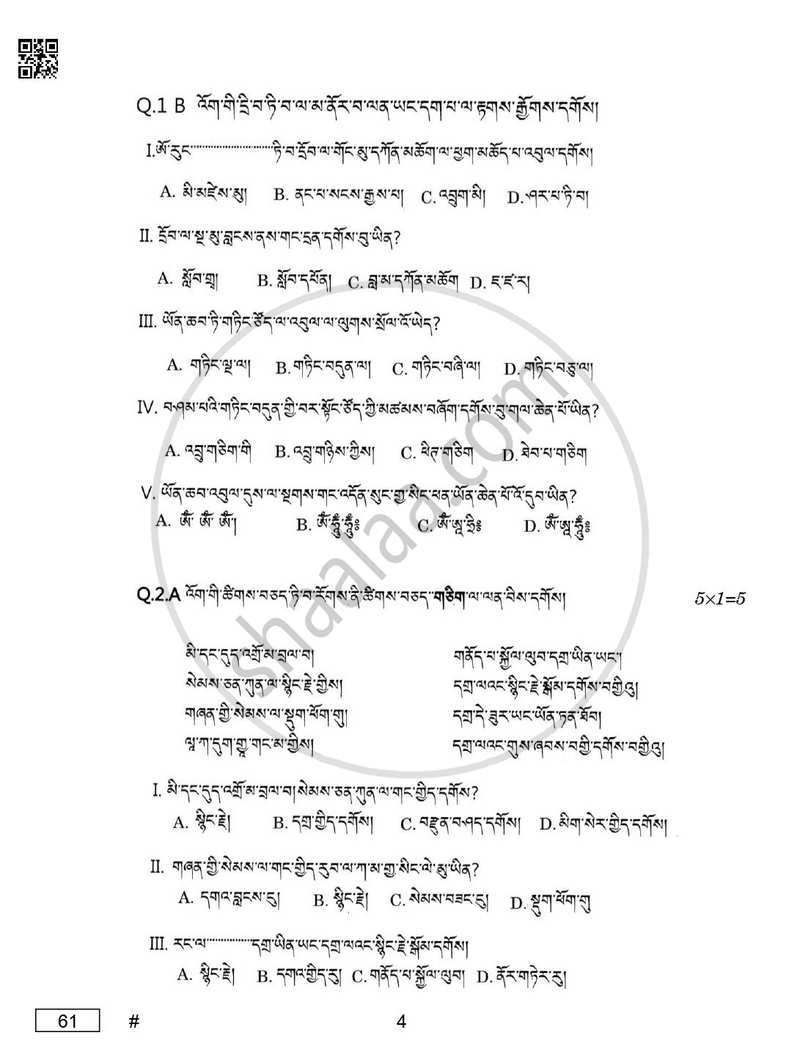 Q.1 B འོག་གི་དྲི་བ་ཏི་བ་ལ་མ་ནོར་བ་ལན་ཡང་དག་པ་ལ་རྟགས་རྒྱོགས་དགོས།
I.ཨོ་རུང་........................ཏི་བ་དྲོབ་ལ་གོང་མུ་དཀོན་མཆོག་ལ་ཕྱག་མཆོད་པ་འབུལ་དགོས།
A. མི་མཛེས་མུ། B. ནང་པ་སངས་རྒྱས་པ། C. འབྲུག་མི། D. ཤར་པ་ཏི་བ།
II. དྲོབ་ལ་སྔ་མུ་བླངས་ནས་གང་དྲན་དགོས་བུ་ཡིན?
A. སློབ་གྲྭ། B. སློབ་དཔོན། C. བླ་མ་དཀོན་མཆོག D. ང་ཛ་ར།
III. ཡོན་ཆབ་ཏི་གཏིང་ཙོད་ལ་འབུལ་ལ་ལུགས་སྲོལ་འོ་ཡེད?
A. གཏིང་ལྔ་ལ། B. གཏིང་བདུན་ལ། C. གཏིང་བཞི་ལ། D. གཏིང་བཅུ་ལ།
IV. བཤམ་པའི་གཏིང་བདུན་གྱི་བར་སྟོང་ཙོད་ཀྱི་མཚམས་བཞོག་དགོས་བུ་གལ་ཆེན་པོ་ཡིན?
A. འབྲུ་གཅིག་གི B. འབྲུ་གཉིས་ཀྱིས། C. ཕིཏ་གཅིག D. ཐེབ་པ་གཅིག
V. ཡོན་ཆབ་འབུལ་དུས་ལ་སྔགས་གང་འདོན་སུང་གྱ་སིང་ཕན་ཡོན་ཆེན་པོ་འོ་དུབ་ཡིན?
A. ཨོཾ་ ཨོཾ་ ཨོཾ། B. ཨོཾ་ཧཱུྃ་ཧཱུྃ༔ C. ཨོཾ་ཨཱ་ཧྲི༔ D. ཨོཾ་ཨཱ་ཧཱུྃ༔
Q.2.A འོག་གི་ཚིགས་བཅད་ཏི་བ་རོགས་ནི་ཚིགས་བཅད་གཅིག་ལ་ལན་བིས་དགོས། 5×1=5
མི་དང་དུད་འགྲོ་མ་བྲལ་བ། གནོད་པ་སྐྱོལ་ལུབ་དགྲ་ཡིན་ཡང་།
སེམས་ཅན་ཀུན་ལ་སྙིང་རྗེ་གྱིས། དགྲ་ལའང་སྙིང་རྗེ་སྒོམ་དགོས་བགྱིའུ།
གཞན་གྱི་སེམས་ལ་སྡུག་ཕོག་གུ། དགྲ་དེ་ཟུར་ཡང་ཡོན་ཏན་ཐོབ།
ལཱ་ཀ་དུག་གྲྭ་གང་མ་གྱིས། དགྲ་ལའང་གུས་ཞབས་བགྱི་དགོས་བགྱིའུ།
I. མི་དང་དུད་འགྲོ་མ་བྲལ་བ།སེམས་ཅན་ཀུན་ལ་གང་གྱིད་དགོས?
A. སྙིང་རྗེ། B. དགྲ་གྱིད་དགོས། C. བརྫུན་བཤད་དགོས། D. མིག་སེར་གྱིད་དགོས།
II. གཞན་གྱི་སེམས་ལ་གང་གྱིད་རུབ་ལ་ཀ་མ་གྱ་སིང་ལེ་མུ་ཡིན?
A. དགའ་བླངས་དུ། B. སྙིང་རྗེ། C. སེམས་བཟང་དུ། D. སྡུག་ཕོག་གུ
III. རང་ལ་..............དགྲ་ཡིན་ཡང་དགྲ་ལའང་སྙིང་རྗེ་སྒོམ་དགོས།
A. སྙིང་རྗེ། B. དགའ་གྱིད་རུ། C. གནོད་པ་སྐྱོལ་ལུབ། D. ནོར་གཏེར་རུ།
61 # 4
shaalaa.com